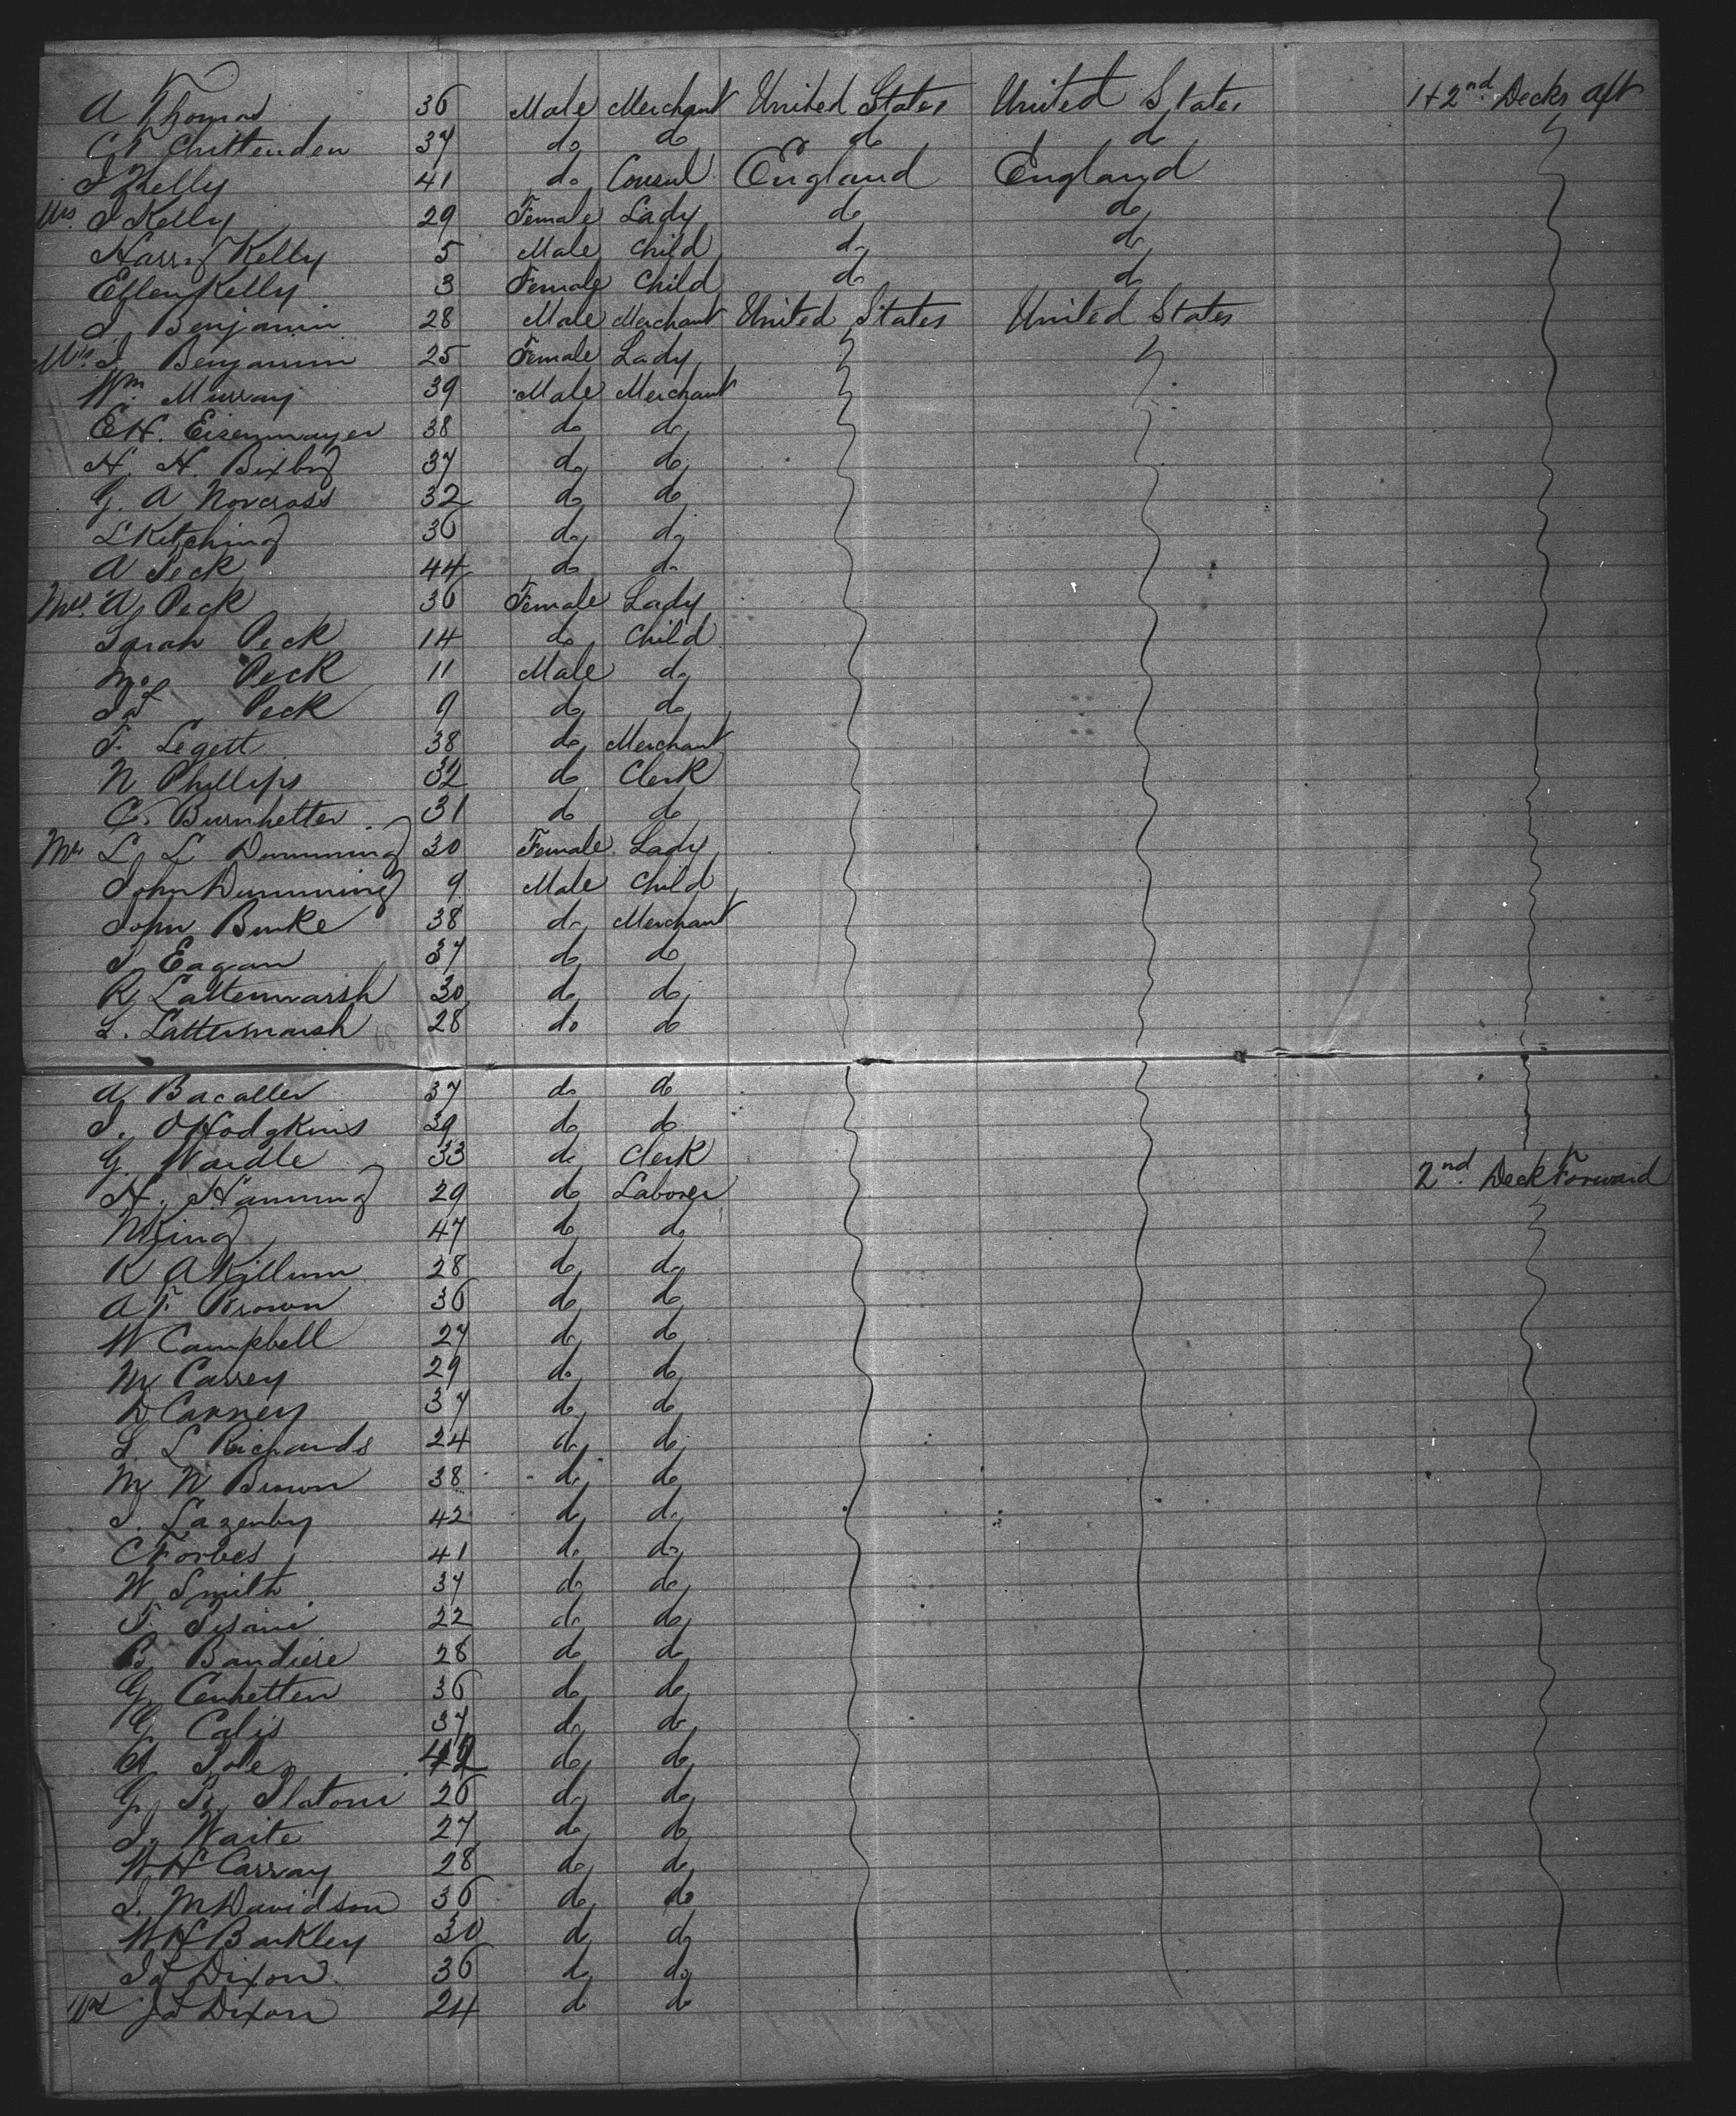 A Thomas 36 Male Merchant United States United States 1 + 2nd Decks aft
C F Chittenden 37 do do do do
J Kelly 41 do Consul England England
Mrs. J Kelly 29 Female Lady do do
Harry Kelly 5 Male Child do do
Ellen Kelly 3 Female Child do do
J. Benjamin 28 Male Merchant United States United States
Mrs. J. Benjamin 25 Female Lady
Wm. Murray 39 Male Merchant
E H. Eisenmayer 38 do do
H. H. Bixby 37 do do
G. A Norcross 32 do do
L Kitching 36 do do
A Peck 44 do do
Mrs. A. Peck 36 Female Lady
Sarah Peck 14 do Child
Peck 11 Male do
Peck 9 do do
F. Legett 38 do Merchant
N Phillips 32 do Clerk
C. Burnhetter 31 do do
Mrs L. L. Dumming 30 Female Lady
John Dumming 9 Male Child
John Burke 38 do Merchant
J. Eagan 37 do do
R. Lattermarsh 30 do do
L. Lattermarsh 28 do do
A. Bacaller 37 do do
J. O Hodgkins 39 do do
G. Wardle 33 do Clerk
H. Hanning 29 do Laborer 2nd. Deck Forward
N King 47 do do
K A Killum 28 do do
A F. Brown 36 do do
W Campbell 27 do do
M Carrey 29 do do
D Carney 37 do do
L. L Richards 24 do do
M. N. Brown 38 do do
J. Lazenby 42 do do
C Forbes 41 do do
W. Smith 37 do do
F. Pisani 22 do do
B. Bandiere 28 do do
G. Cenhetten 36 do do
G Calis 37 do do
A 42 do do
G. B. Slatoni 26 do do
J. Waite 27 do do
W H Carray 28 do do
J. M Davidson 36 do do
W H Barkley 30 do do
Dixon 36 do do
Dixon 24 do do